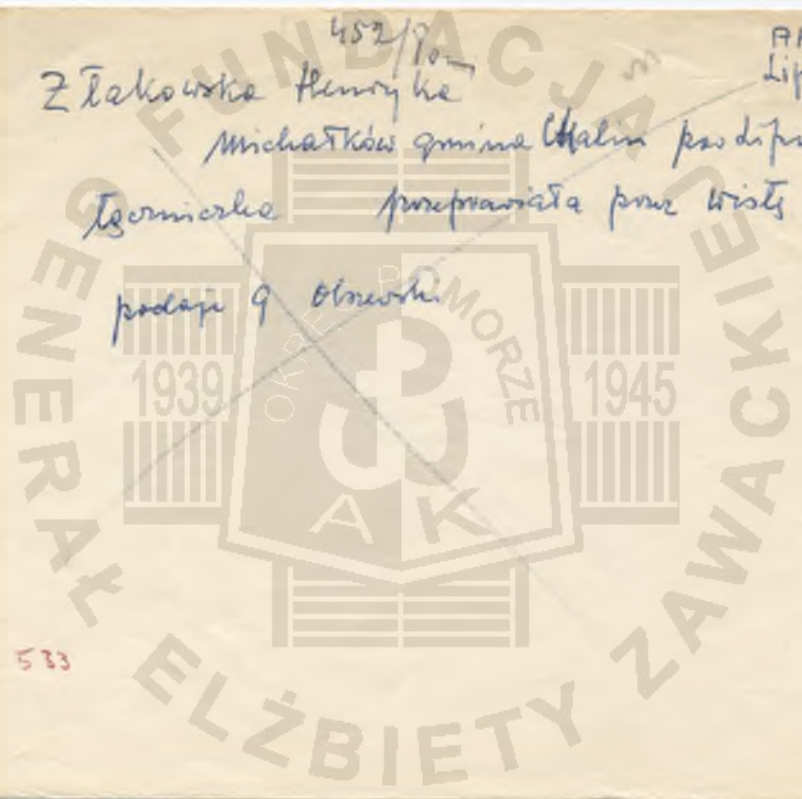 452/Pom
AK
Lip
Złakowska Henryka
Michałków gmina Chalin pow Lipno
łączniczka przeprawiała przez Wisłę
podaje G Olszewski
533
FUNDACJA
GENERAŁ ELŻBIETY ZAWACKIEJ
OKRĘG POMORZE
1939 1945
AK